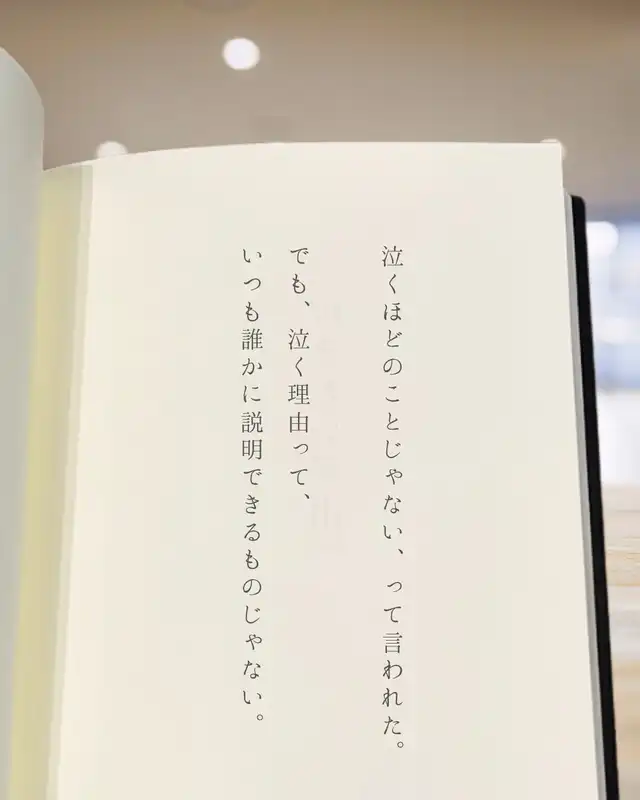 泣くほどのことじゃない、って言われた。
でも、泣く理由って、
いつも誰かに説明できるものじゃない。